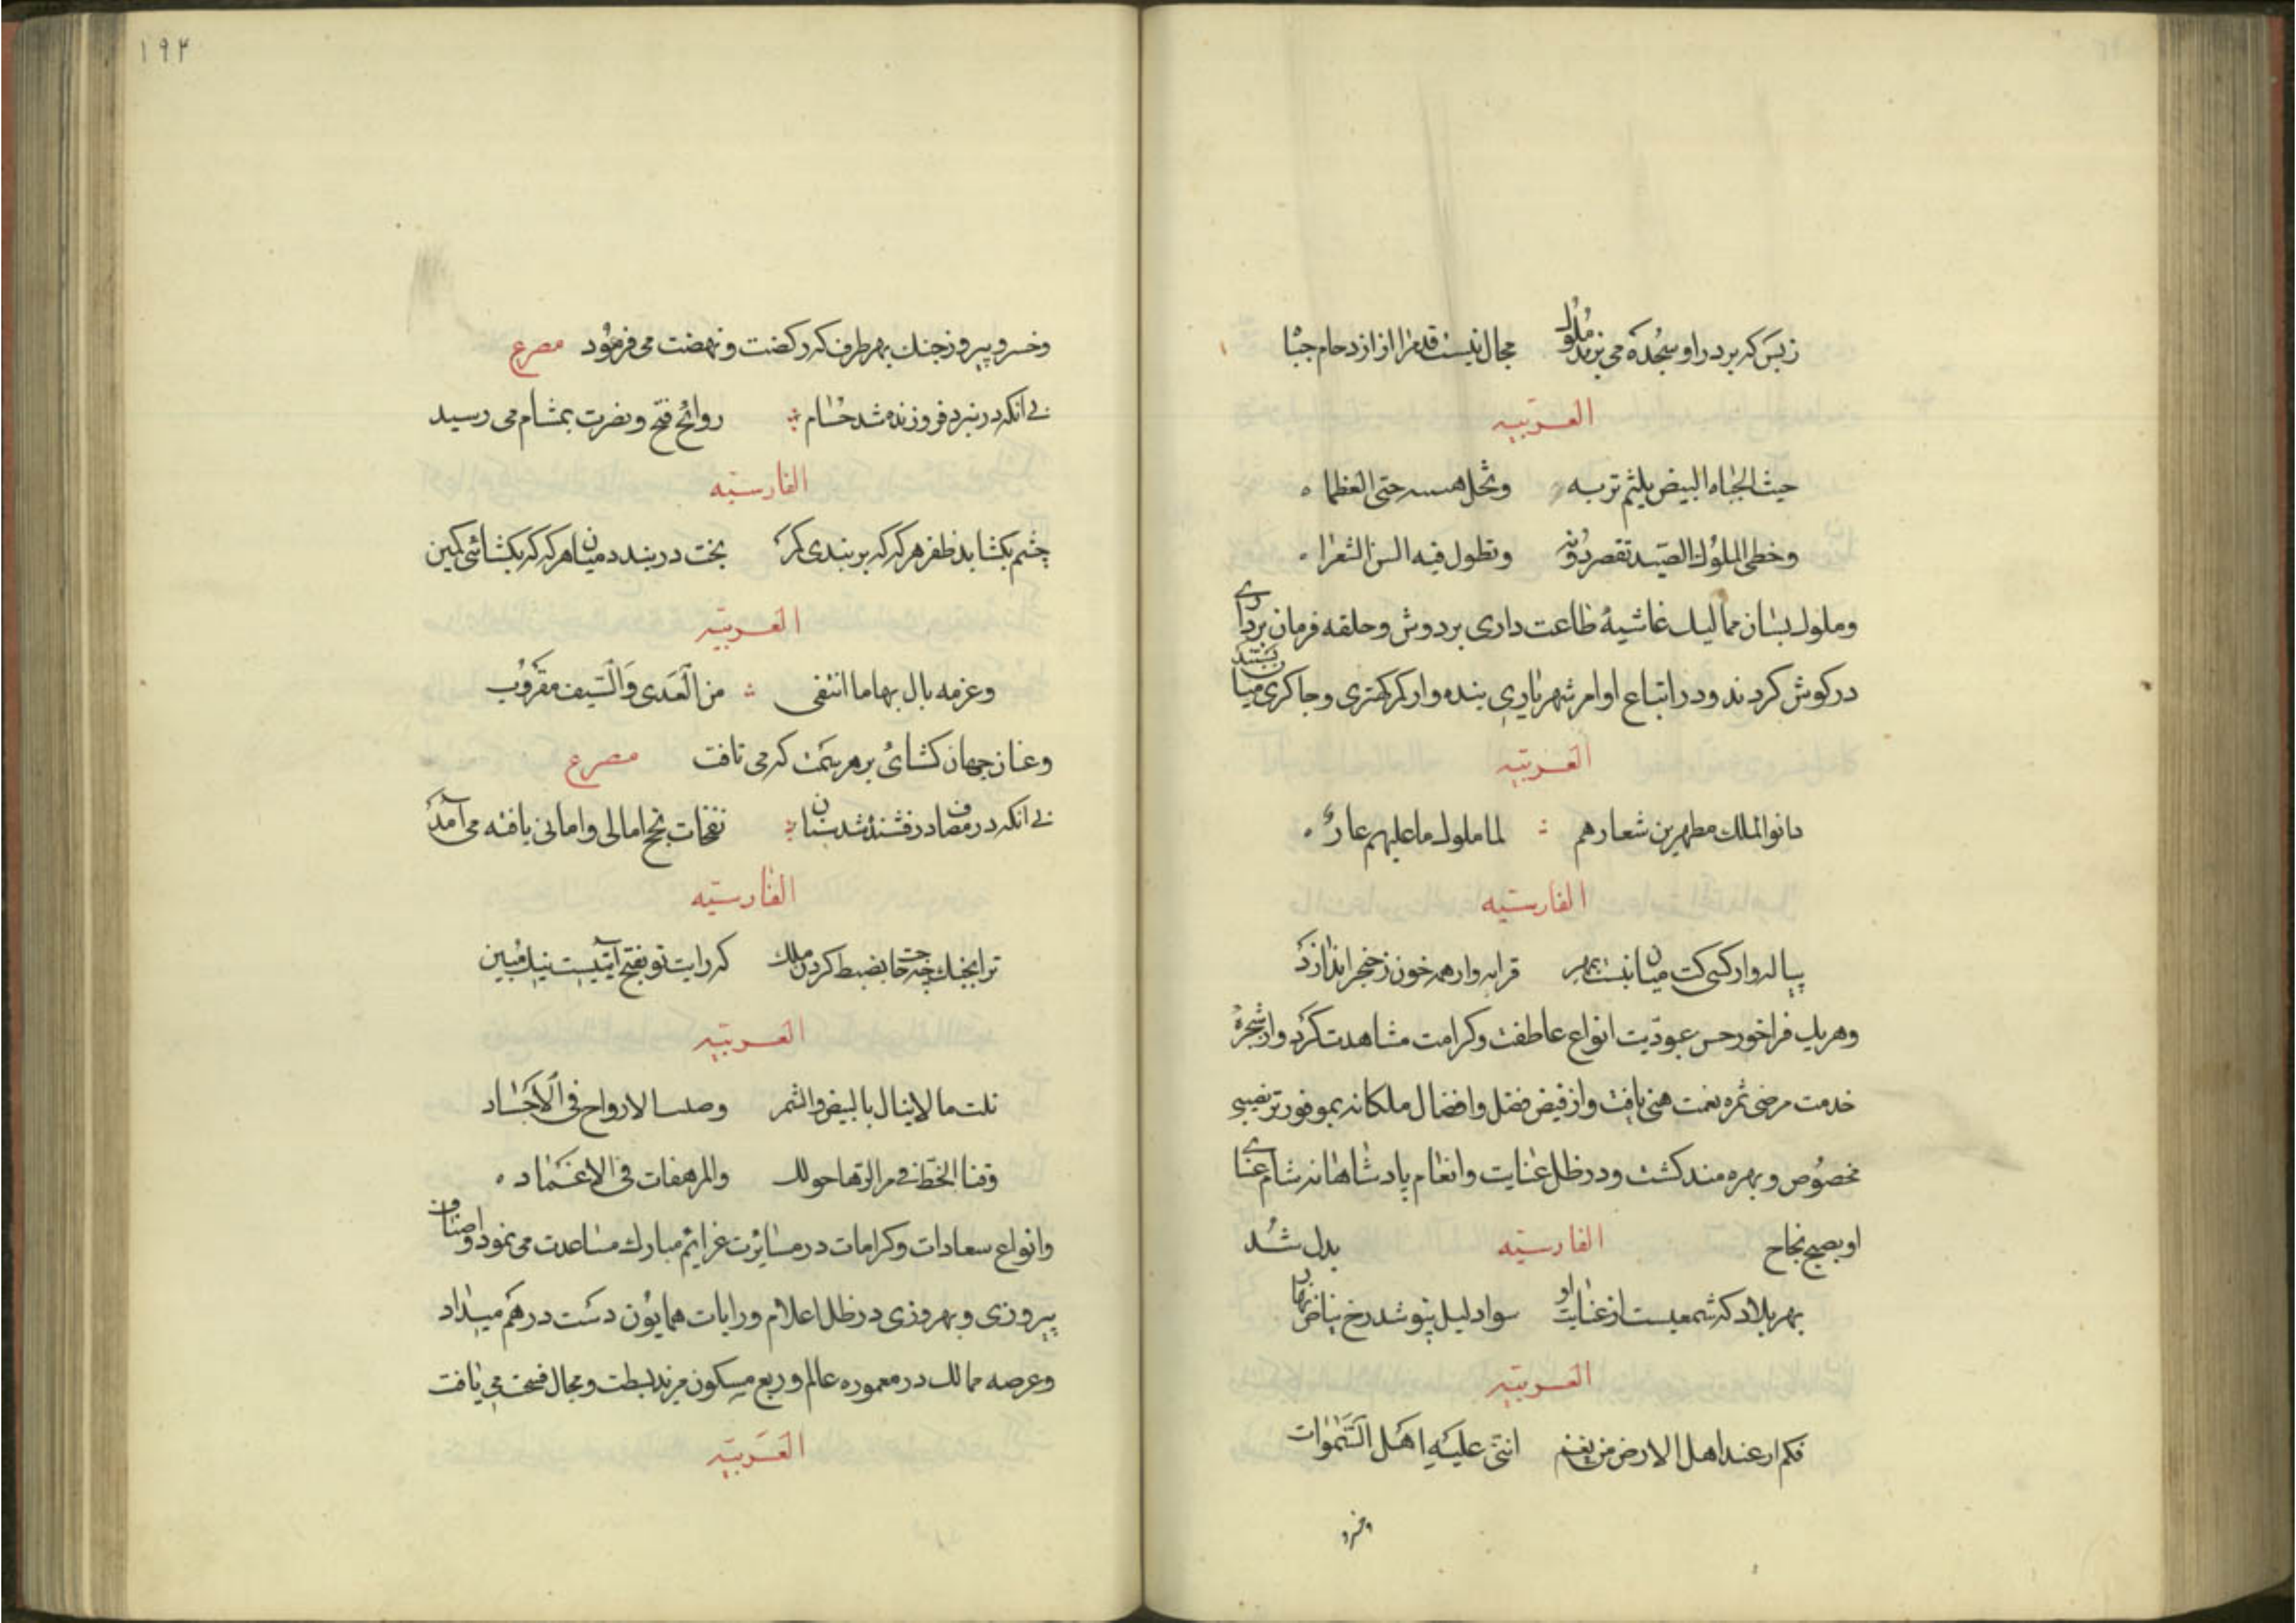 زبس که بر در او سجده می برند ملوک مجال نیست قدم را از ازدحام جباه
العربیه
حیث الجباه البیض یلثم تربه وتحل حتی العظما
وخطی الملوک الصید تقصر دونه وتطول فیه السن الشعرا
وملوک بسان ممالیک غاشیهٔ طاعت داری بر دوش وحلقه فرمان برداری
در کوش کردند ودر اتباع اوامر شهریاری بنده وار کمر کهتری وچاکری میان بستند
العربیه
دانوا لملک مطهرین شعارهم لما ملوک ما علیهم عار
الفارسیه
پیاله وار کسی کت میان نبست بمهر قرابه وار همه خون ز خنجر اندازد
وهریک فراخور حسن عبودیت انواع عاطفت وکرامت مشاهدت کرد واز شجرهٔ
خدمت مرضی ثمره نعمت هنی یافت واز فیض فضل وافضال ملکانه بموفورتر نصیبی
مخصوص وبهره مند کشت ودر ظل عنایت وانعام پادشاهانه شام عنای
او بصبح نجاح الفارسیه بدل شد
بهر بلاد که شمعیست از عنایت او سواد لیل بپوشد رخ بیاض نهار
العربیه
فکم ارعند اهل الارض من نعم اثنی علیه اهل السموات
وخسرو
١٩٢
وخسرو پیروز جنک بهر طرف که رکضت ونهضت می فرمود مصرع
بی آنکه در نبرد فروزنده شد حسام روائح فتح ونصرت بمشام می رسید
الفارسیه
چشم بکشاید ظفر هر که که بر بندی کمر بخت در بندد میان هر که که بکشائی کمین
العربیه
وعزمه بال بهاما انتفی من العدی والسیف مقروب
وعنان جهان کشای بر هر سمت که می تافت مصرع
بی آنکه در مصاف درفشنده شد سنان نفحات نجح امالی وامانی یافته می آمد
الفارسیه
ترا بجنک چه حاجت بضبط کردن ملک که رایت تو بفتح آیتیست نیک مبین
العربیه
نلت ما لا ینال بالبیض والسمر الارواح فی الاجساد
وقنا الخط فی مراکزها حولک والمرهفات فی الاغماد
وانواع سعادات وکرامات در مسایرت عزایم مبارک مساعدت می نمود واصناف
پیروزی وبهروزی در ظل اعلام ورایات همایون دست در هم میداد
وعرصه ممالک در معموره عالم وربع مسکون مزید بسطت ومجال فسحت می یافت
العربیه